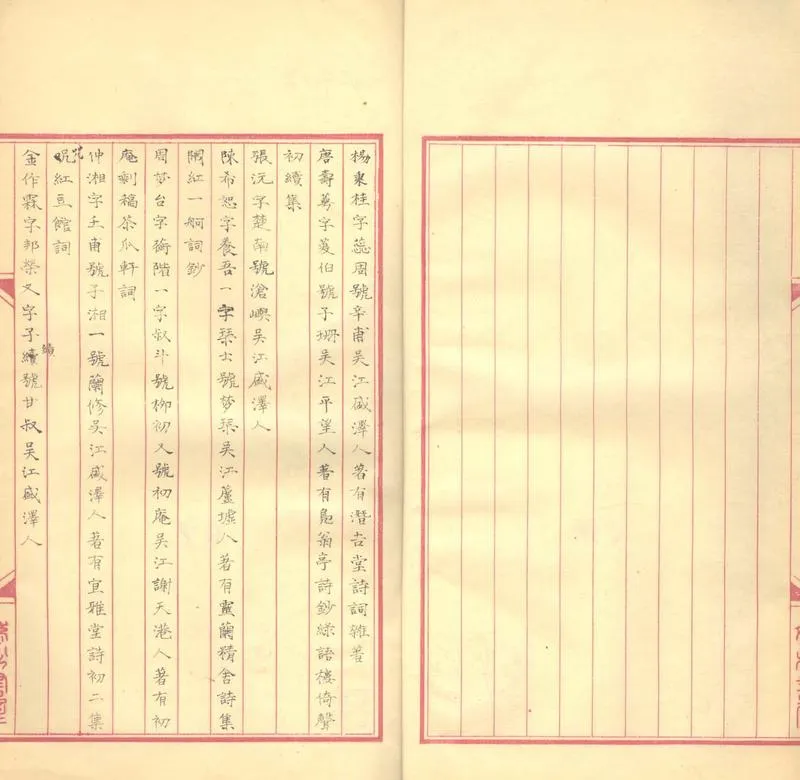 楊秉桂字蕊周號辛甫吳江盛澤人著有潛吉堂詩詞雜著
唐壽萼字萼伯號子珊吳江平望人著有鳧翁亭詩鈔綠語樓倚聲
初續集
張沅字楚南號滄嶼吳江盛澤人
陳希恕字養吾一字琴士號夢琴吳江蘆墟人著有靈蘭精舍詩集
閙紅一舸詞鈔
周夢台字衡階一字叔斗號柳初又號初庵吳江謝天港人著有初
庵剩稿茶瓜軒詞
仲湘字壬甫號子湘一號蘭修吳江盛澤人著有宜雅堂詩初二集
呪紅豆館詞
金作霖字邦榮又字子續號甘叔吳江盛澤人